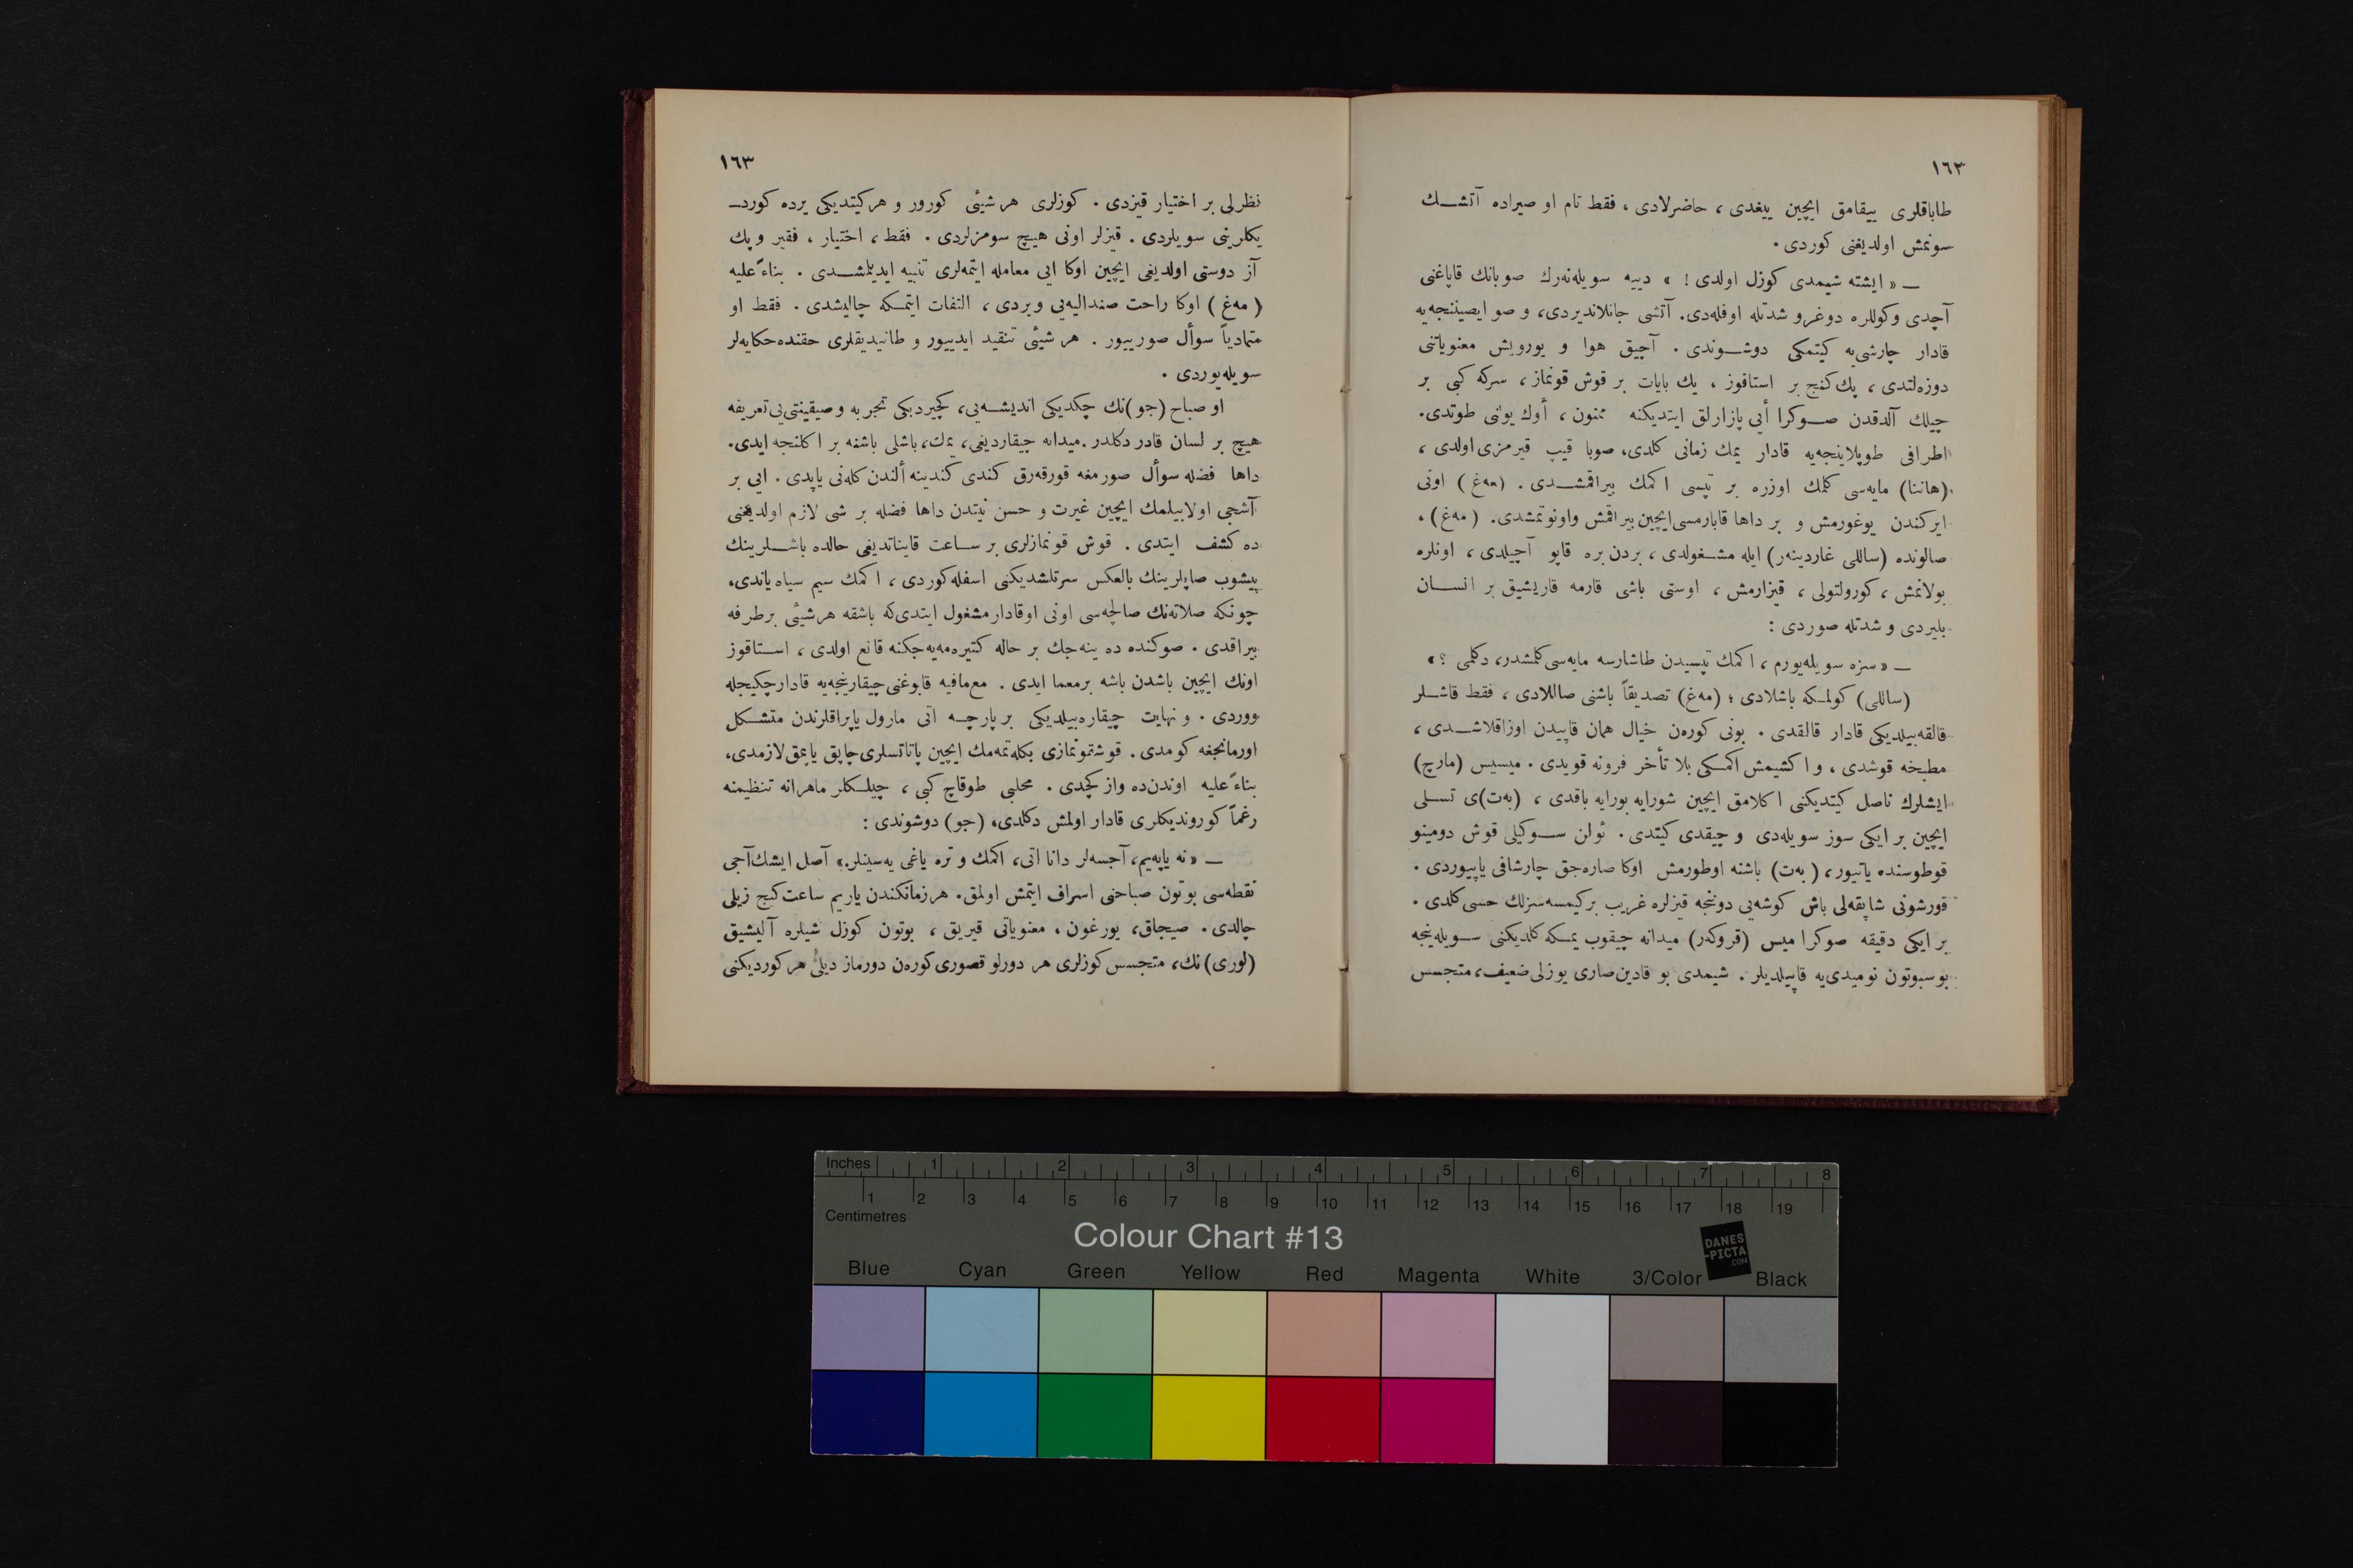 ١٦٢
طاباقلری ییقامق ایچین ییغدی ، حاضرلادی ، فقط تام او صیراده آتشــك
سونمش اولدیغنی كوردی .
— « ایشته شیمدی كوزل اولدی ! » دییه سویله‌نه‌رك صوبانك قاپاغنی
آچدی و كوللره دوغرو شدتله اوفله‌دی. آتشی جانلاندیردی، و صو ایصیننجه‌یه
قادار چارشی‌یه كیتمكی دوشــوندی . آچیق هوا و یورویش معنویاتنی
دوزه‌لتدی ، پك كنج بر استاقوز ، پك بایات بر قوش قونماز ، سركه كبی بر
چیلك آلدقدن صــوكرا أیی پازارلق ایتدیكنه ممنون ، أوك یولنی طوتدی.
اطرافی طوپلاینجه‌یه قادار یمك زمانی كلدی، صوبا قیپ قیرمزی اولدی ،
(هاننا) مایه‌سی كلمك اوزره بر تپسی اكمك بیراقمشــدی . (مه‌غ) اونی
ایركندن یوغورمش و بر داها قابارمسی ایچین بیراقمش واونوتمشدی. (مه‌غ) ،
صالونده (ساللی غاردینه‌ر) ایله مشــغولدی ، بردن بره قاپو آچیلدی ، اونلره
بولانمش ، كورولتولی ، قیزارمش ، اوستی باشی قارمه قاریشیق بر انســان
بلیردی و شدتله صوردی :
— « سزه سویله‌یورم ، اكمك تپسیدن طاشارسه مایه‌سی كلمشدر، دكلمی ؟ »
(ساللی) كولمــكه باشلادی ؛ (مه‌غ) تصدیقاً باشنی صاللادی ، فقط قاشــلر
قالقه‌بیلدیكی قادار قالقدی . بونی كوره‌ن خیال همان قاپیدن اوزاقلاشــدی ،
مطبخه قوشدی ، و اكشیمش اكمــكی بلا تأخر فرونه قویدی . میسیس (مارچ)
ایشلرك ناصل كیتدیكنی اكلامق ایچین شورایه بورایه باقدی ، (به‌ت)ی تســلی
ایچین بر ایكی سوز سویله‌دی و چیقدی كیتدی . ئولن ســوكیلی قوش دومینو
قوطوسنده یاتیور ، (به‌ت) باشنه اوطورمش اوكا صاره‌جق چارشافی یاپیوردی .
قورشونی شاپقه‌لی باش كوشه‌یی دوننجه قیزلره غریب بر كیمسه‌سزلك حسی كلدی .
بر ایكی دقیقه صوكرا میس (قروكه‌ر) میدانه چیقوب یمــكه كلدیكنی ســویله‌ینجه
بوسبوتون نومیدی‌یه قاپیلدیلر . شیمدی بو قادین صاری یوزلی ضعیف، متجسس
١٦٣
نظرلی بر اختیار قیزدی . كوزلری هر شیئی كورور و هر كیتدیكی یرده كورد-
یكلرینی سویلردی . قیزلر اونی هیچ سومزلردی . فقط ، اختیار ، فقیر و پك
آز دوستی اولدیغی ایچین اوكا ایی معامله ایتمه‌لری تنبیه ایدیلمشــدی . بناءً علیه
( مه‌غ ) اوكا راحت صندالیه‌یی ویردی ، التفات ایتمــكه چالیشدی . فقط او
متمادیاً سوأل صورییور . هر شیئی تنقید ایدییور و طانیدیقلری حقنده حكایه‌لر
سویله‌یوردی .
او صباح (جو)نك چكدیكی اندیشــه‌یی، كچیردیكی تجربه و صیقینتی‌یی تعریفه
هیچ بر لسان قادر دكلدر . میدانه چیقاردیغی، یمك، باشلی باشنه بر اكلنجه ایدی.
داها فضله سوأل صورمغه قورقه‌رق كندی كندینه ألندن كله‌نی یاپدی . ایی بر
آشجی اولابیلمك ایچین غیرت و حسن نیتدن داها فضله بر شی لازم اولدیغنی
ده كشف ایتدی . قوش قونمازلری بر ســاعت قایناتدیغی حالده باشــلرینك
پیشوب صاپلرینك بالعكس سرتلشدیكنی اسفله كوردی ، اكمك سیم سیاه یاندی،
چونكه صلاته‌نك صالچه‌سی اونی اوقادار مشغول ایتدی‌كه باشقه هرشیئی برطرفه
بیراقدی . صوكنده ده ینه‌جك بر حاله كتیره‌مه‌یه‌جكنه قانع اولدی ، اســتاقوز
اونك ایچین باشدن باشه برمعما ایدی . مع‌مافیه قابوغنی چیقارینجه‌یه قادار چكیجله
ووردی . و نهایت چیقاره‌بیلدیكی بر پارچــه اتی مارول یاپراقلرندن متشــكل
اورمانجغه كومدی . قوشقونمازی بكله‌تمه‌مك ایچین پاتاتسلری چاپق یاپمق لازمدی،
بناءً علیه اوندن‌ده واز كچدی . محلبی طوقاچ كبی ، چیلــكلر ماهرانه تنظیمنه
رغماً كوروندیكلری قادار اولمش دكلدی، (جو) دوشوندی :
— « نه یاپه‌یم، آجسه‌لر دانا اتی، اكمك و تره یاغی یه‌سینلر.» آصل ایشك آجی
نقطه‌سی بوتون صباحی اسراف ایتمش اولمق . هرزمانكندن یاریم ساعت كیج زیلی
چالدی . صیجاق، یورغون ، معنویاتی قیریق ، بوتون كوزل شیلره آلیشیق
(لوری) نك، متجسس كوزلری هر دورلو قصوری كوره‌ن دورماز دیلی هر كوردیكنی
Inches 1 2 3 4 5 6 7 8
1 2 3 4 5 6 7 8 9 10 11 12 13 14 15 16 17 18 19
Centimetres
Colour Chart #13
DANES
-PICTA
.COM
Blue Cyan Green Yellow Red Magenta White 3/Color Black